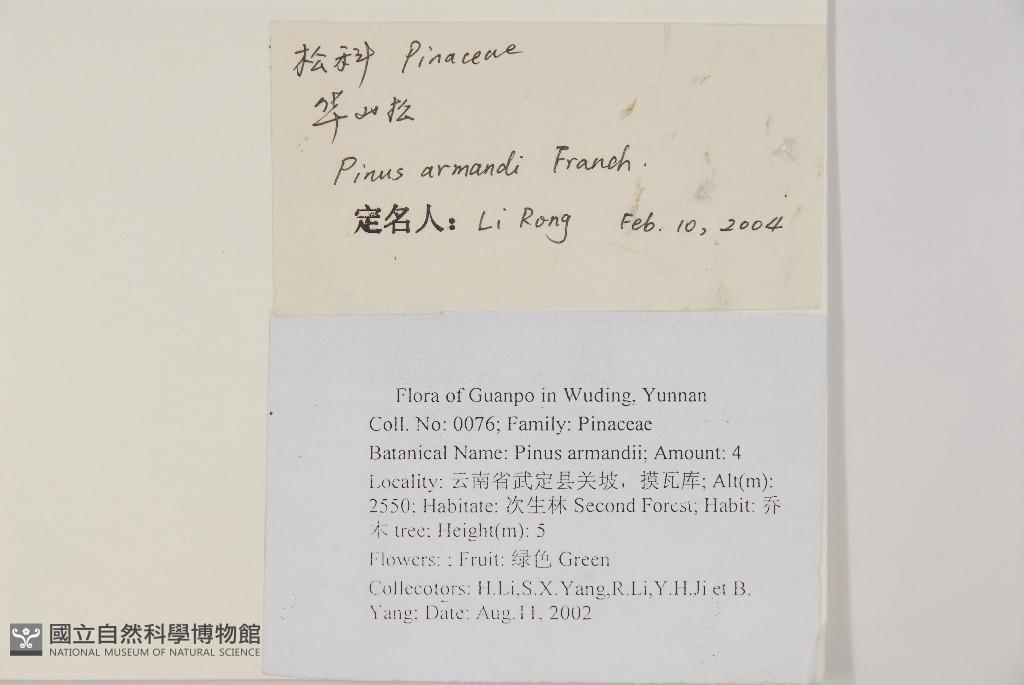 松科 Pinaceae
华山松
Pinus armandi Franch.
定名人: Li Rong Feb. 10, 2004
Flora of Guanpo in Wuding, Yunnan
Coll. No: 0076; Family: Pinaceae
Batanical Name: Pinus armandii; Amount: 4
Locality: 云南省武定县关坡，摸瓦库; Alt(m):
2550; Habitate: 次生林 Second Forest; Habit: 乔
木 tree; Height(m): 5
Flowers: ; Fruit: 绿色 Green
Collecotors: H.Li,S.X.Yang,R.Li,Y.H.Ji et B.
Yang; Date: Aug.11, 2002
國立自然科學博物館
NATIONAL MUSEUM OF NATURAL SCIENCE